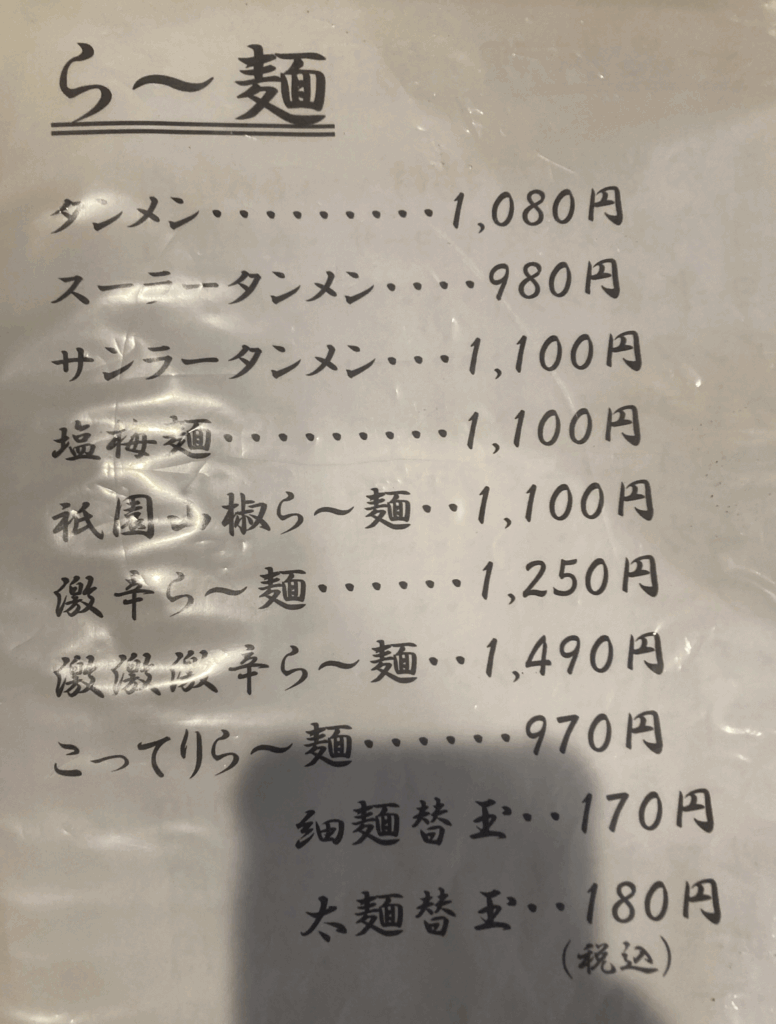 ら〜麺
タンメン・・・・・・・・・・1,080円
スーラータンメン・・・・980円
サンラータンメン・・・1,100円
塩梅麺・・・・・・・・・・1,100円
祇園山椒ら〜麺・・1,100円
激辛ら〜麺・・・・・・1,250円
激激激辛ら〜麺・・1,490円
こってりら〜麺・・・・・・970円
細麺替玉・・170円
太麺替玉・・180円
(税込)